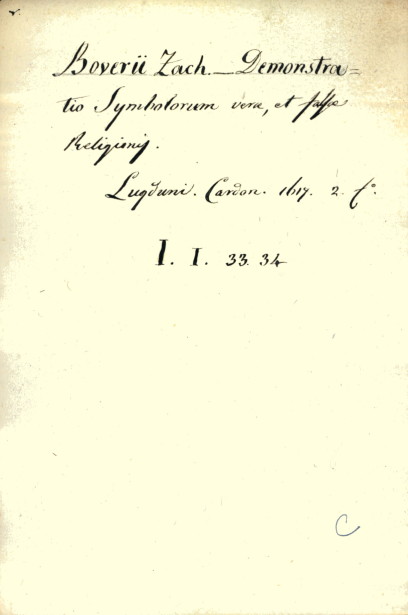 Boverii Zach. — Demonstra=
tio Symbolorum veræ, et falsæ
Religionis.
Lugduni. Cardon. 1617. 2. f.º
I. I. 33. 34
C